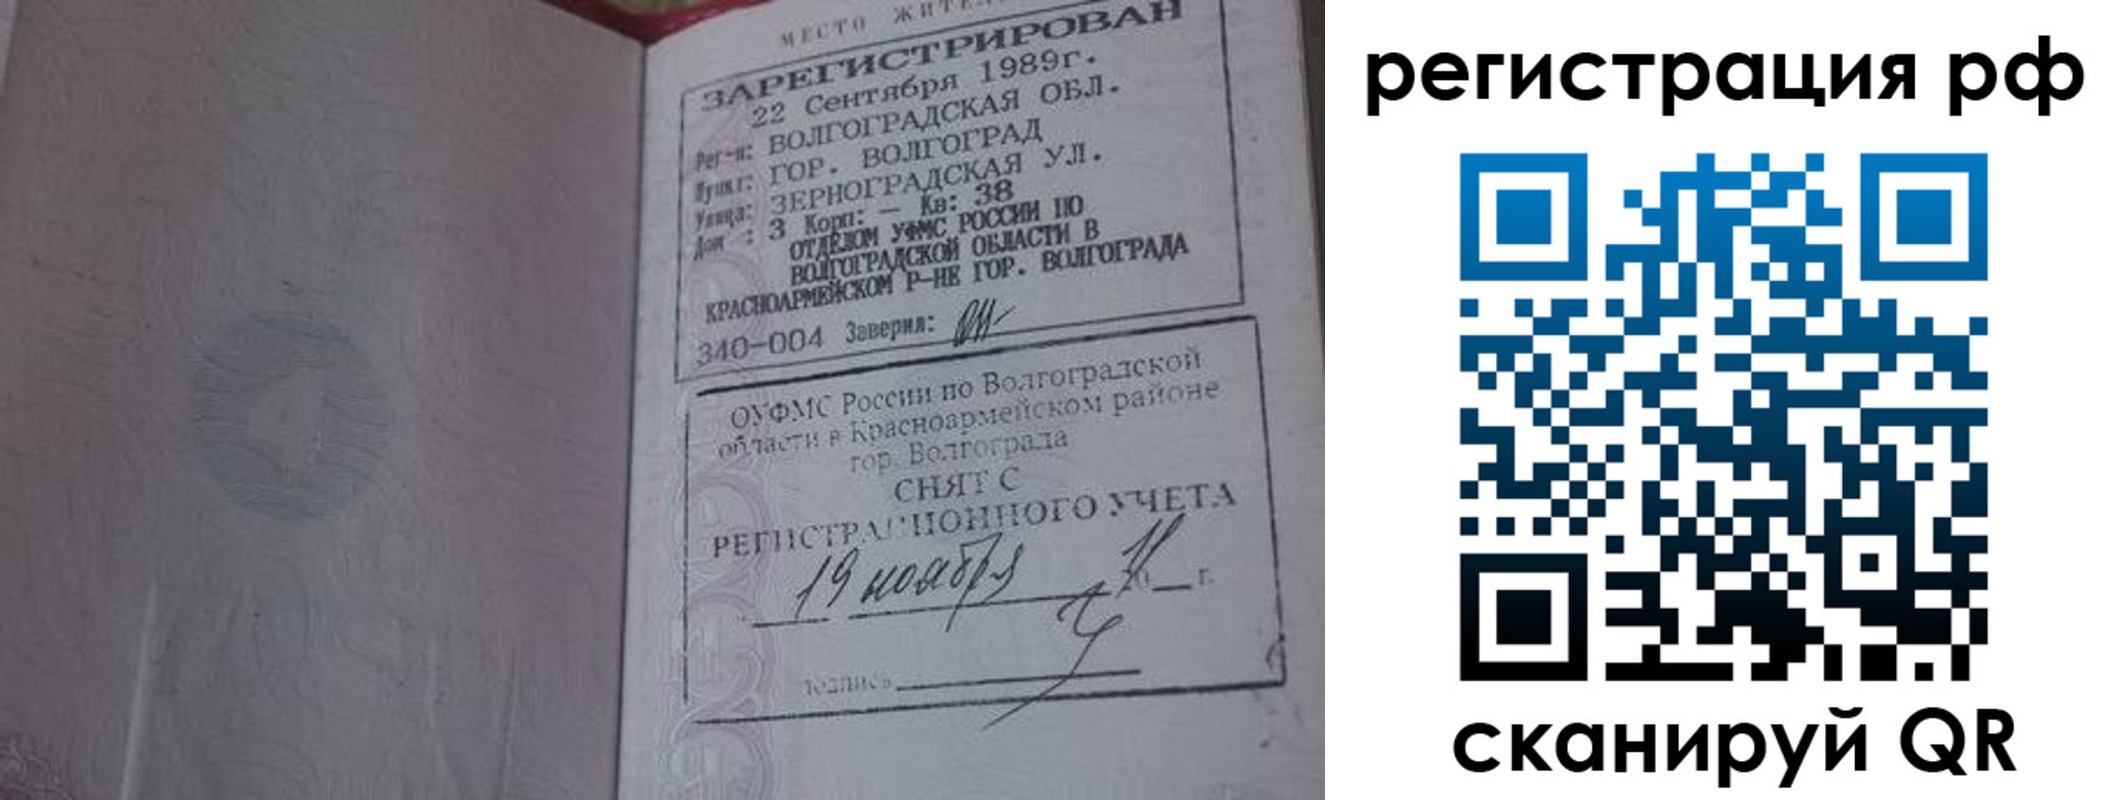 МЕСТО ЖИТЕЛ
ЗАРЕГИСТРИРОВАН
22 Сентября 1989г.
Рег-н: ВОЛГОГРАДСКАЯ ОБЛ.
Пункт: ГОР. ВОЛГОГРАД
Улица: ЗЕРНОГРАДСКАЯ УЛ.
Дом : 3 Корп: — Кв: 38
ОТДЕЛОМ УФМС РОССИИ ПО
ВОЛГОГРАДСКОЙ ОБЛАСТИ В
КРАСНОАРМЕЙСКОМ Р-НЕ ГОР. ВОЛГОГРАДА
340-004 Заверил:
ОУФМС России по Волгоградской
области в Красноармейском районе
гор. Волгограда
СНЯТ С
РЕГИСТРАЦИОННОГО УЧЕТА
19 ноября 20 г.
подпись
регистрация рф
сканируй QR